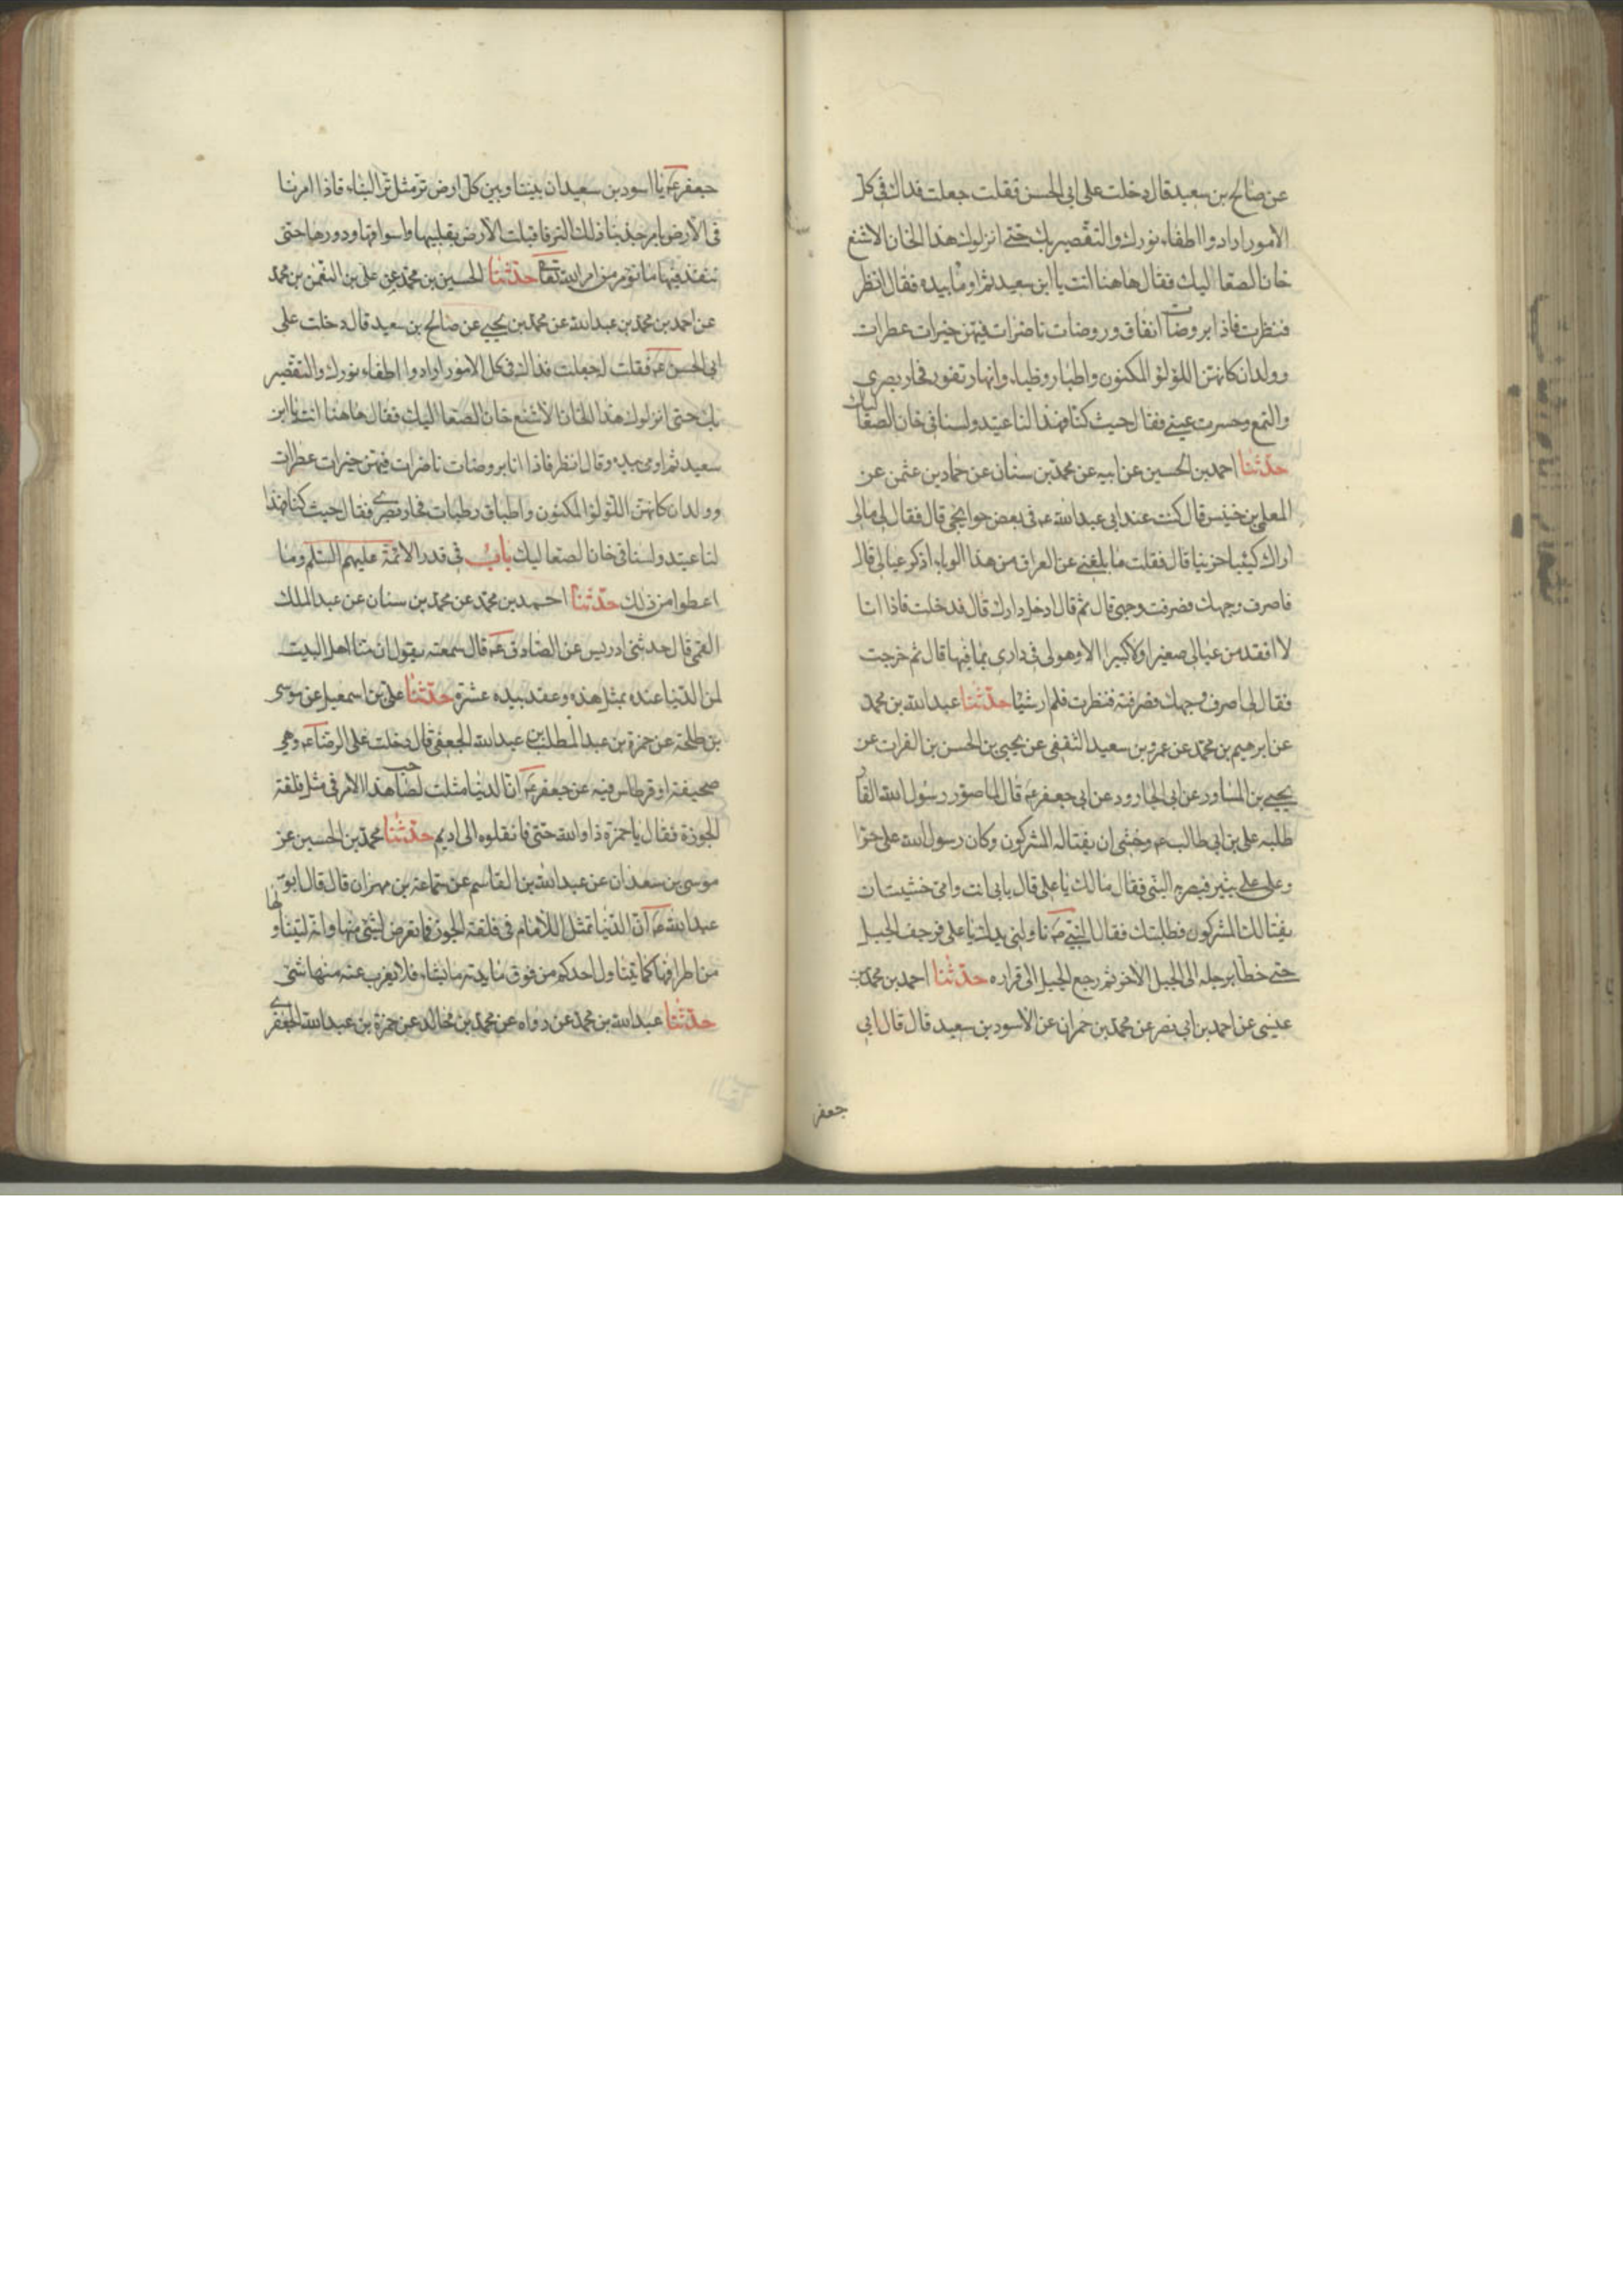 عن صالح بن سعيد قال دخلت على ابى الحسن فقلت جعلت فداك فى كل
الامور ارادوا اطفاء نورك والتقصير بك حتى انزلوك هذا الخان الاشنع
خان الصعاليك فقال هاهنا انت يا ابن سعيد ثم اومأ بيده فقال انظر
فنظرت فاذا بروضات انفاق وروضات ناضرات فيهن خيرات عطرات
وولدان كانهن اللؤلؤ المكنون واطيار وظباء وانهار تفور فحار بصرى
والتمع وحسرت عينى فقال حيث كنا فهذا لنا عتيد ولسنا فى خان الصعاليك
حدثنا احمد بن الحسين عن ابيه عن محمد بن سنان عن حماد بن عثمن عن
المعلى بن خنيس قال كنت عند ابى عبد الله ع فى بعض حوايجى قال فقال لى مالى
اراك كئيبا حزينا قال فقلت ما بلغنى عن العراق من هذا الوباء اذكر عيالى قال
فاصرف وجهك فصرفت وجهى قال ثم قال ادخل دارك قال فدخلت فاذا انا
لا افقد من عيالى صغيرا ولا كبيرا الا وهو لى فى دارى بما فيها قال ثم خرجت
فقال لى اصرف وجهك فصرفته فنظرت فلم ار شيئا حدثنا عبد الله بن محمد
عن ابرهيم بن محمد عن عمرو بن سعيد الثقفى عن يحيى بن الحسن بن الفرات عن
يحيى بن المساور عن ابى الجارود عن ابى جعفر ع قال لما صور رسول الله الغار
طلبه على بن ابى طالب ع وخشى ان يغتاله المشركون وكان رسول الله على حرا
وعلى على بثير فبصر به النبى فقال مالك يا على قال بابى انت وامى خشيت ان
يغتالك المشركون فطلبتك فقال النبى ص ناولنى يدك يا على فرجف الجبل
حتى خطا برجله الى الجبل الاخر ثم رجع الجبل الى قراره حدثنا احمد بن محمد بن
عيسى عن احمد بن ابى نصر عن محمد بن حمران عن الاسود بن سعيد قال قال ابى
جعفر
جعفر ع يا اسود بن سعيد ان بيننا وبين كل ارض تر مثل تر البناء فاذا امرنا
فى الارض بامر جذبنا ذلك التر فاقبلت الارض بقليبها واسواقها ودورها حتى
تنفذ فيها ما نؤمر من امر الله تعا حدثنا الحسين بن محمد عن على بن النعمن بن محمد
عن احمد بن محمد بن عبد الله عن محمد بن يحيى عن صالح بن سعيد قال دخلت على
ابى الحسن ع فقلت له جعلت فداك فى كل الامور ارادوا اطفاء نورك والتقصير
بك حتى انزلوك هذا الخان الاشنع خان الصعاليك فقال هاهنا انت يا ابن
سعيد ثم اومى بيده وقال انظر فاذا انا بروضات ناضرات فيهن خيرات عطرات
وولدان كانهن اللؤلؤ المكنون واطباق رطبات فحار بصرى فقال حيث كنا فهذا
لنا عتيد ولسنا فى خان الصعاليك باب فى قدر الائمة عليهم السلم وما
اعطوا من ذلك حدثنا احمد بن محمد عن محمد بن سنان عن عبد الملك
القمى قال حدثنى ادريس عن الصادق ع قال سمعته يقول ان منا اهل البيت
لمن الدنيا عنده بمثل هذه وعقد بيده عشرة حدثنا على بن اسمعيل عن موسى
بن طلحة عن حمزة بن عبد المطلب بن عبد الله الجعفى قال دخلت على الرضا ع وهى
صحيفة او قرطاس فيه عن جعفر ع ان الدنيا مثلت لصاحب هذا الامر فى مثل فلقة
الجوزة فقال يا حمزة ذا والله حتى فانقلوه الى اديم حدثنا محمد بن الحسين عن
موسى بن سعدان عن عبد الله بن القاسم عن سماعة بن مهران قال قال ابو
عبد الله ع ان الدنيا تمثل للامام فى فلقة الجوز فما تعرض لشئ منها وانه ليتناولها
من اطرافها كما يتناول احدكم من فوق مايدته ما يشاء فلا يعزب عنه منها شئ
حدثنا عبد الله بن محمد عن رواه عن محمد بن خالد عن حمزة بن عبد الله الجعفرى